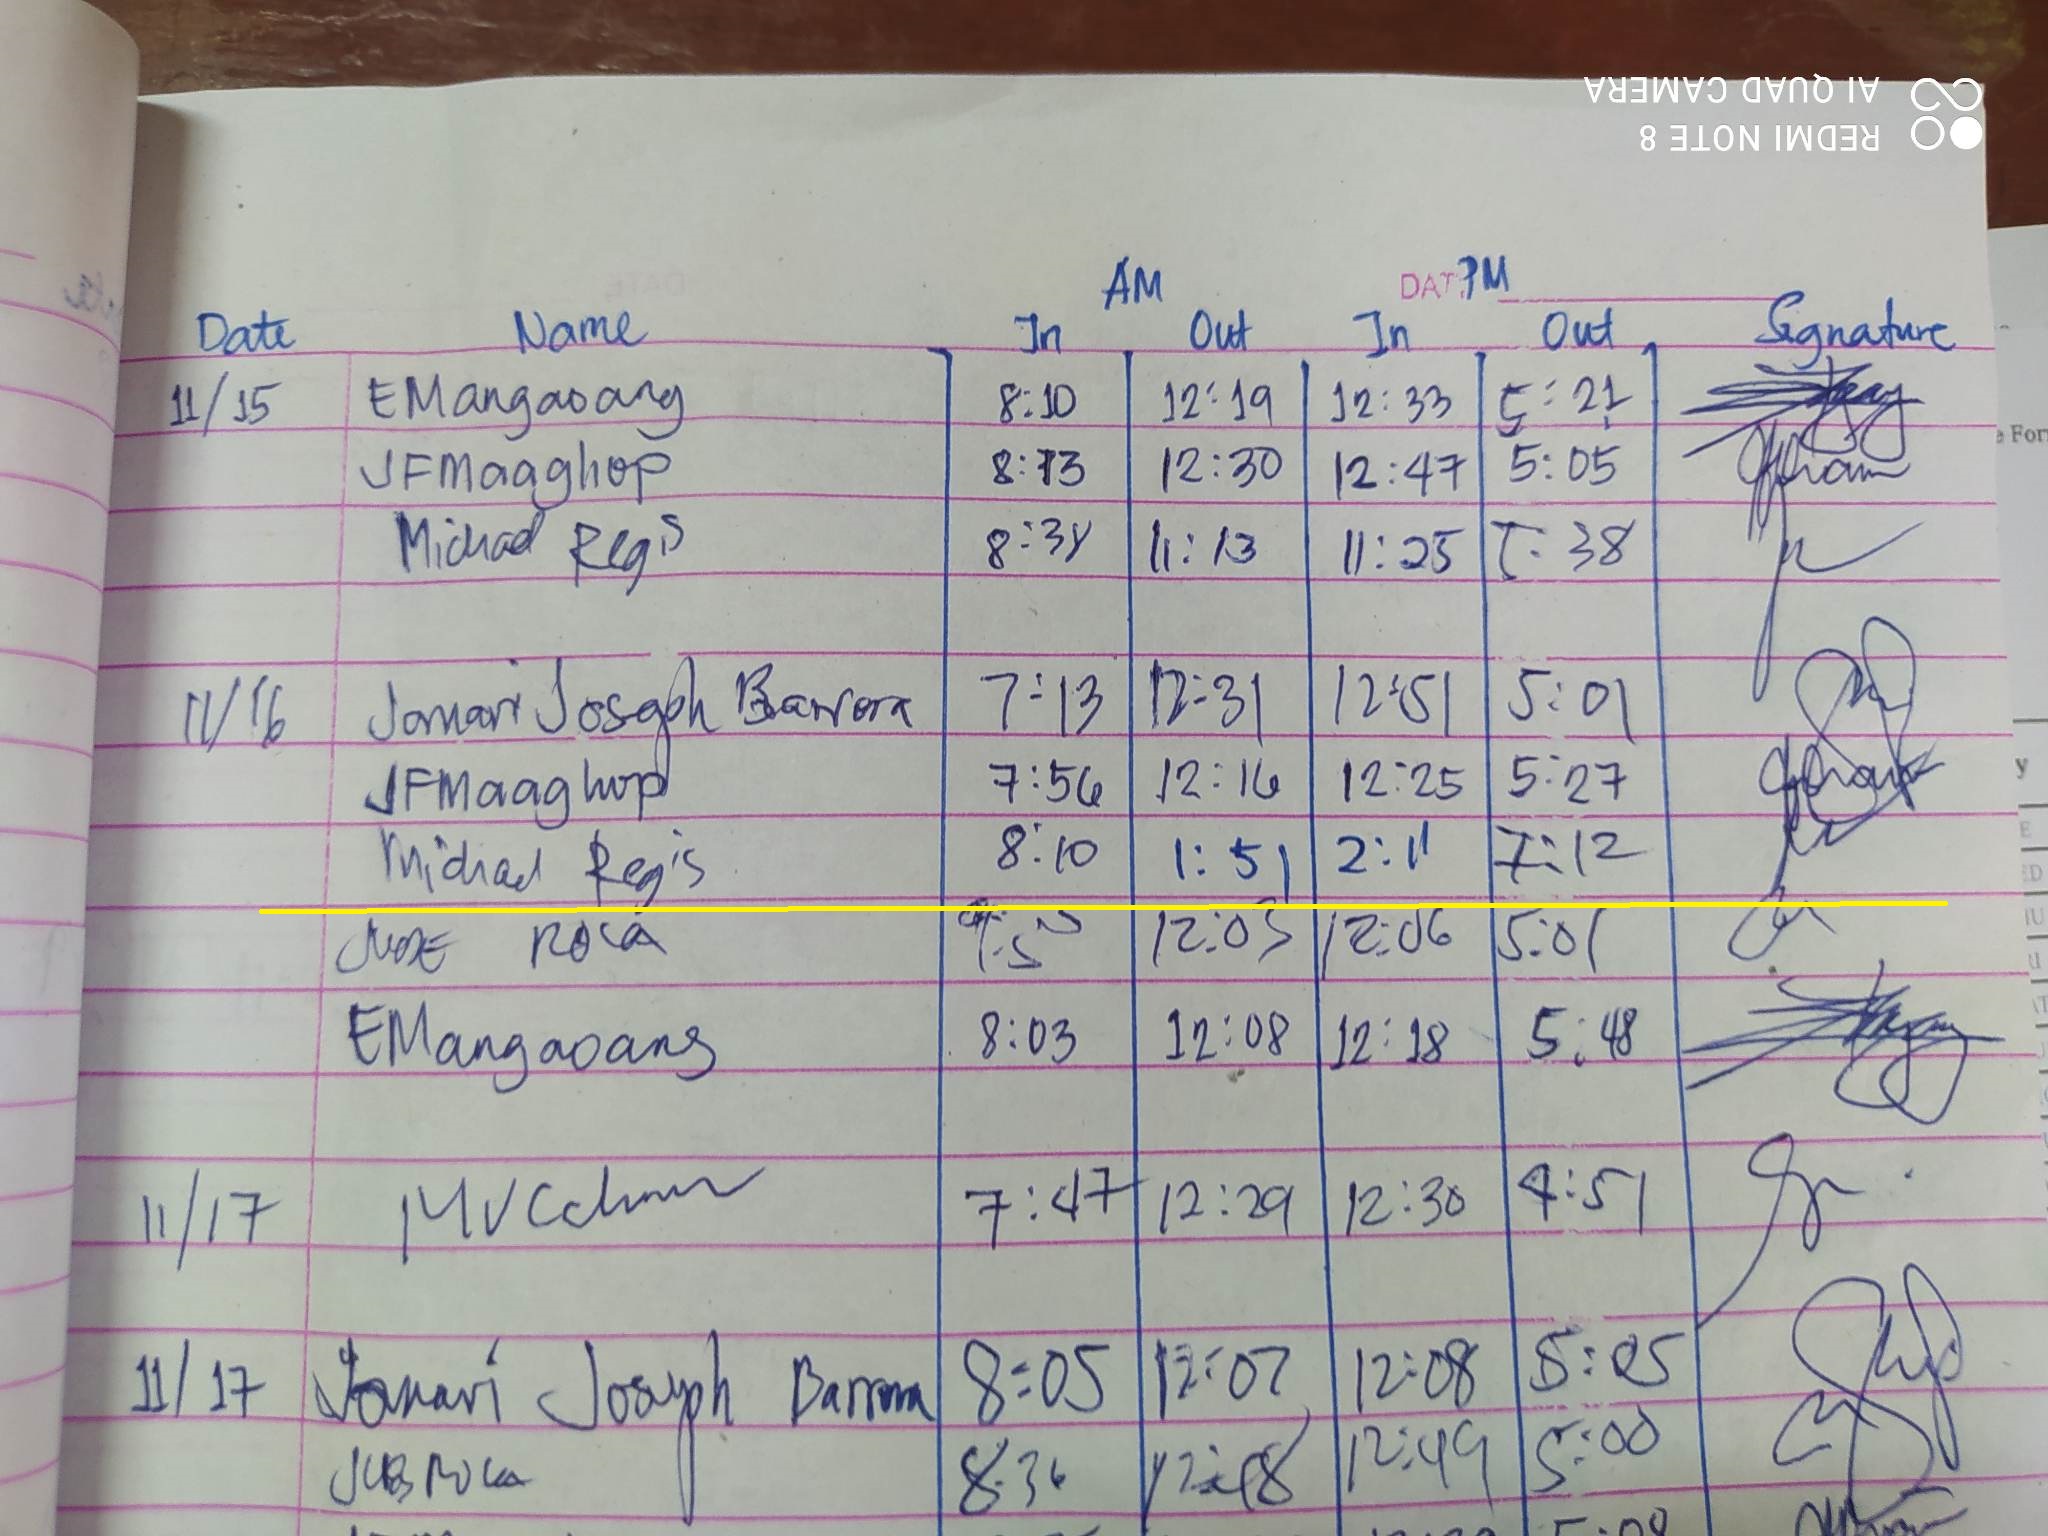 REDMI NOTE 8
AI QUAD CAMERA
AM PM
Date Name In Out In Out Signature
11/15 EMangaoang 8:10 12:19 12:33 5:21
JFMaaghop 8:13 12:30 12:47 5:05
Michael Regis 8:38 11:13 11:25 5:38
11/16 Jomari Joseph Barrera 7:13 12:31 12:51 5:01
JFMaaghop 7:56 12:16 12:25 5:27
Michael Regis 8:10 1:51 2:11 7:12
ROCA 12:05 12:06 5:01
EMangaoang 8:03 12:08 12:18 5:48
11/17 7:47 12:29 12:30 4:51
11/17 Jomari Joseph Barrera 8:05 12:07 12:08 5:05
8:36 12:48 12:49 5:00